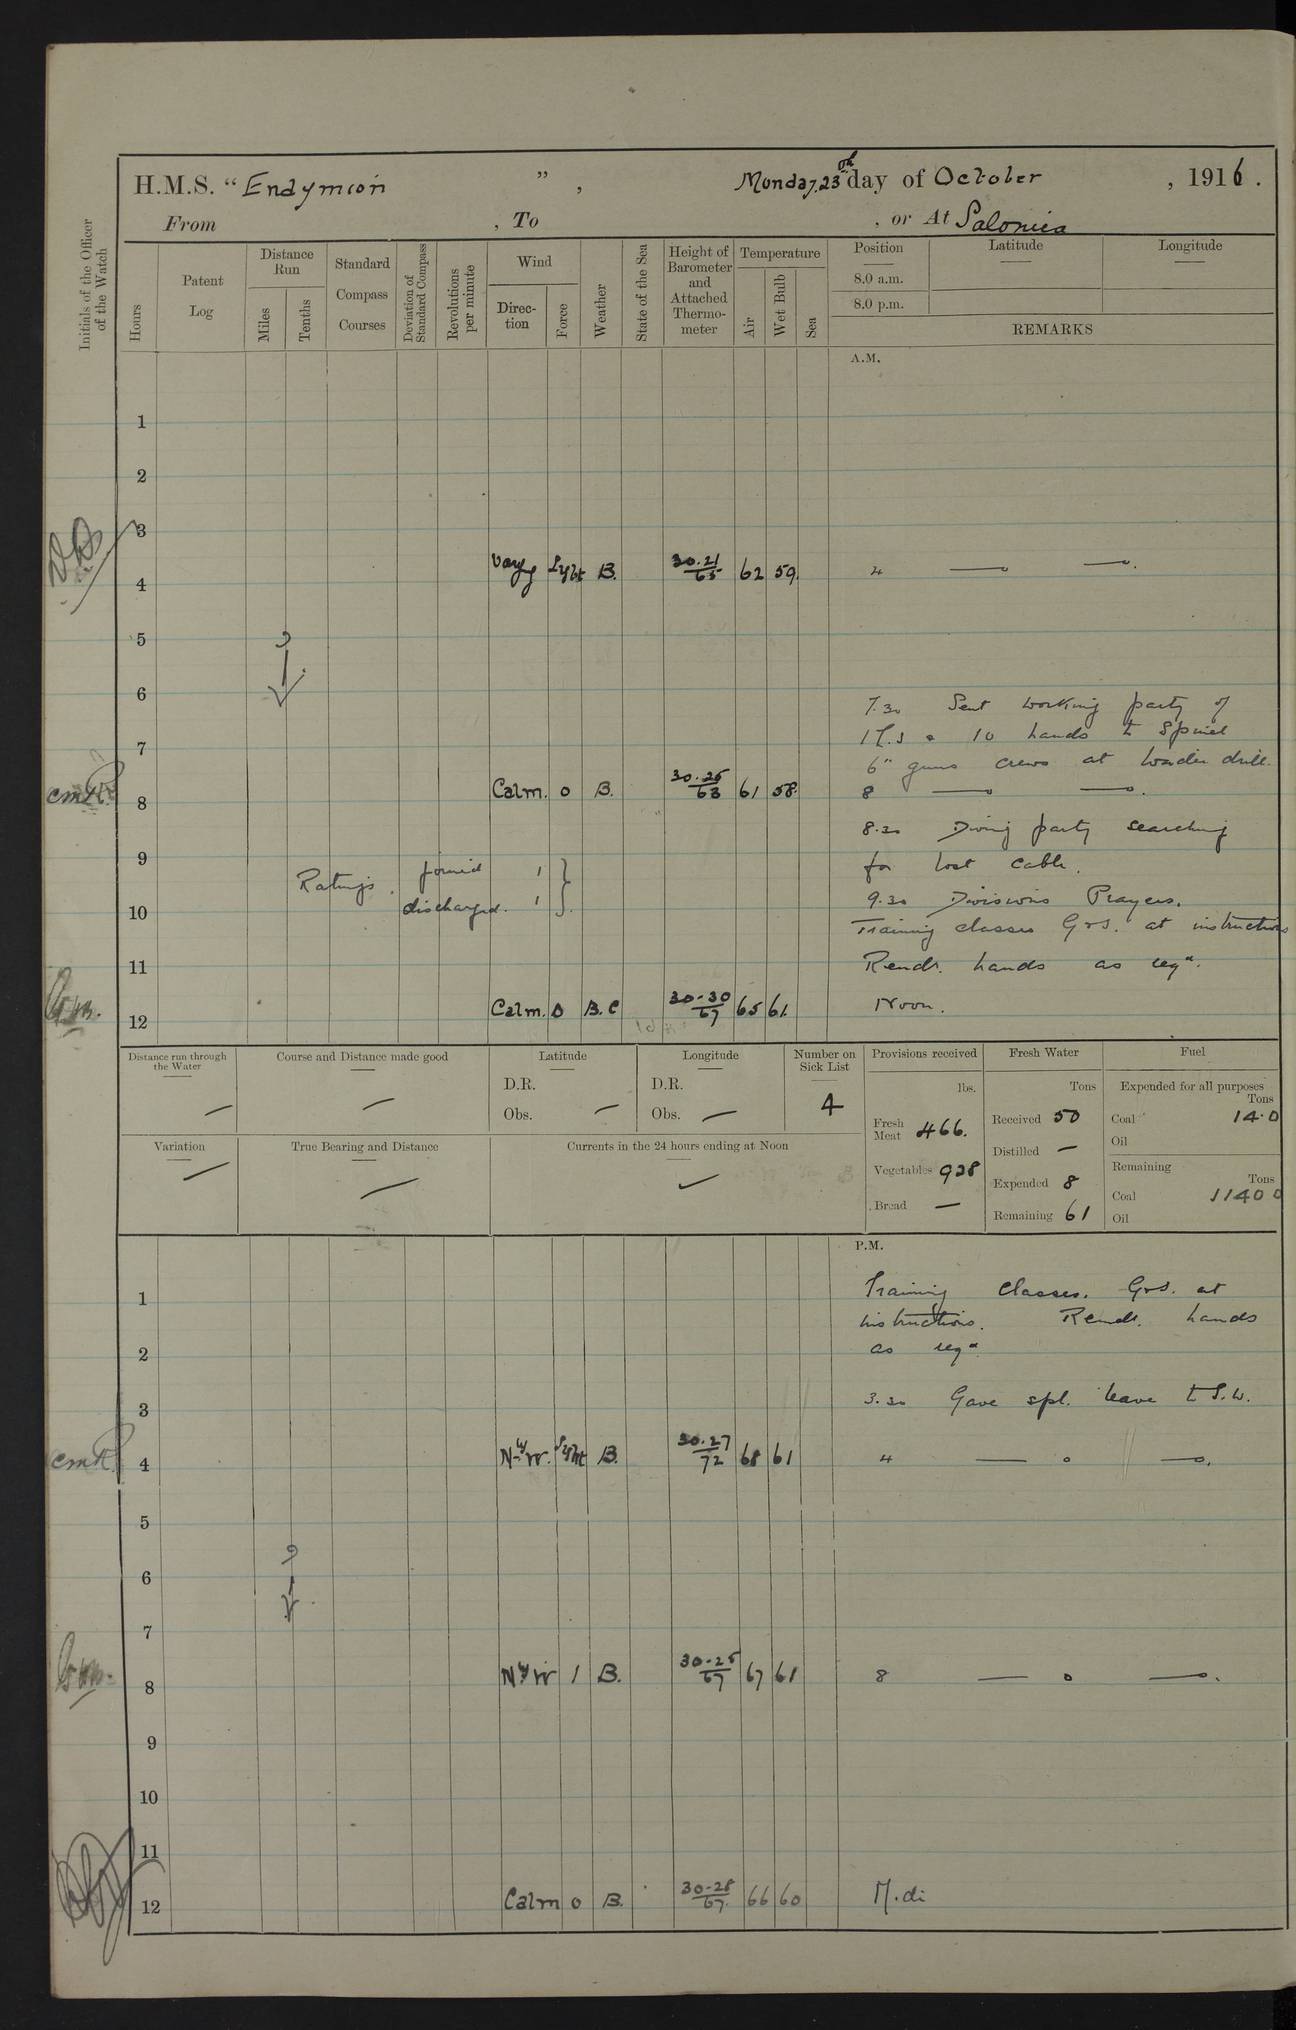 H.M.S. "Endymion", Monday 23rd day of October, 1916.
From , To , or At Salonica
Initials of the Officer of the Watch
Hours
Patent Log
Distance Run
Miles
Tenths
Standard Compass Courses
Deviation of Standard Compass
Revolutions per minute
Wind
Direction
Force
Weather
State of the Sea
Height of Barometer and Attached Thermometer
Temperature
Air
Wet Bulb
Sea
Position Latitude Longitude
8.0 a.m.
8.0 p.m.
REMARKS
A.M.
1
2
3
4 Varyg Lyht B. 30.21/65 62 59. 4
5
6
7.30 Sent working party of
7
1 P.O & 10 hands to
6" guns crews at loader drill.
cmR. 8 Calm. 0 B. 30.25/63 61 58. 8
8.30 Diving party searching
9 for lost cable.
Ratings joined 1
discharged. 1
9.30 Divisions Prayers.
10
Training classes G&S. at instructions
11 Remdr. hands as reqd.
12 Calm. 0 B.C 30.30/67 65 61. Noon.
Distance run through the Water
Course and Distance made good
Latitude
D.R.
Obs. —
Longitude
D.R.
Obs. —
Number on Sick List
4
Provisions received
lbs.
Fresh Meat 466.
Vegetables 928
Bread —
Fresh Water
Tons
Received 50
Distilled —
Expended 8
Remaining 61
Fuel
Expended for all purposes
Tons
Coal 14.0
Oil
Remaining
Tons
Coal 1140 0
Oil
Variation
True Bearing and Distance
Currents in the 24 hours ending at Noon
P.M.
1 Training Classes. G&S. at
instructions. Remdr. hands
2 as reqd.
3 3.30 Gave spl. leave to S.W.
cmR. 4 NyW. Lyht B. 30.27/72 68 61 4
5
6
7
8 NyW 1 B. 30.25/67 67 61 8
9
10
11
12 Calm 0 B. 30.28/67. 66 60 M.dt